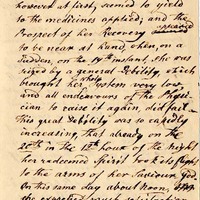 however at first, seemed to yield
to the medicines applied; and the
Prospect of her Recovery appeared
to be near at hand, when, on a
sudden, on the 19th instant, she was
seized by a general debility, which
brought her whole System very low,
and all endeavours of the Physi-
cian to raise it again, did fail.
This great debility was so rapidly
increasing, that already on the
20th in the 10th hour of the night
her redeemed Spirit took its flight
to the arms of her Saviour, God.
On this same day about noon,
the expected